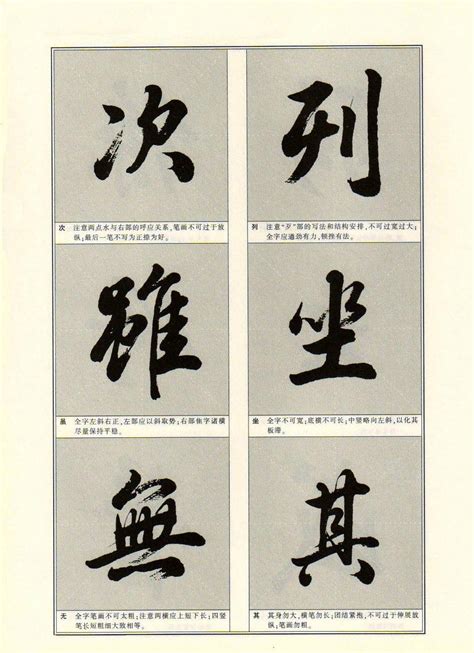 列
列 注意“歹”部的写法和结构安排,不可过宽过大;
全字应遒劲有力,顿挫有法。
坐
坐 全字不可宽;底横不可长;中竖略向左斜,以化其
板滞。
其
其 其身勿大,横笔勿长;团结紧抱,不可过于伸展放
纵;笔画勿粗。
次
次 注意两点水与右部的呼应关系,笔画不可过于放
纵;最后一笔不写为正捺为好。
雖
虽 全字左斜右正,左部应以斜取势;右部隹字诸横
尽量保持平稳。
無
无 全字笔画不可太粗;注意两横应上短下长;四竖
笔长短粗细大致相等。